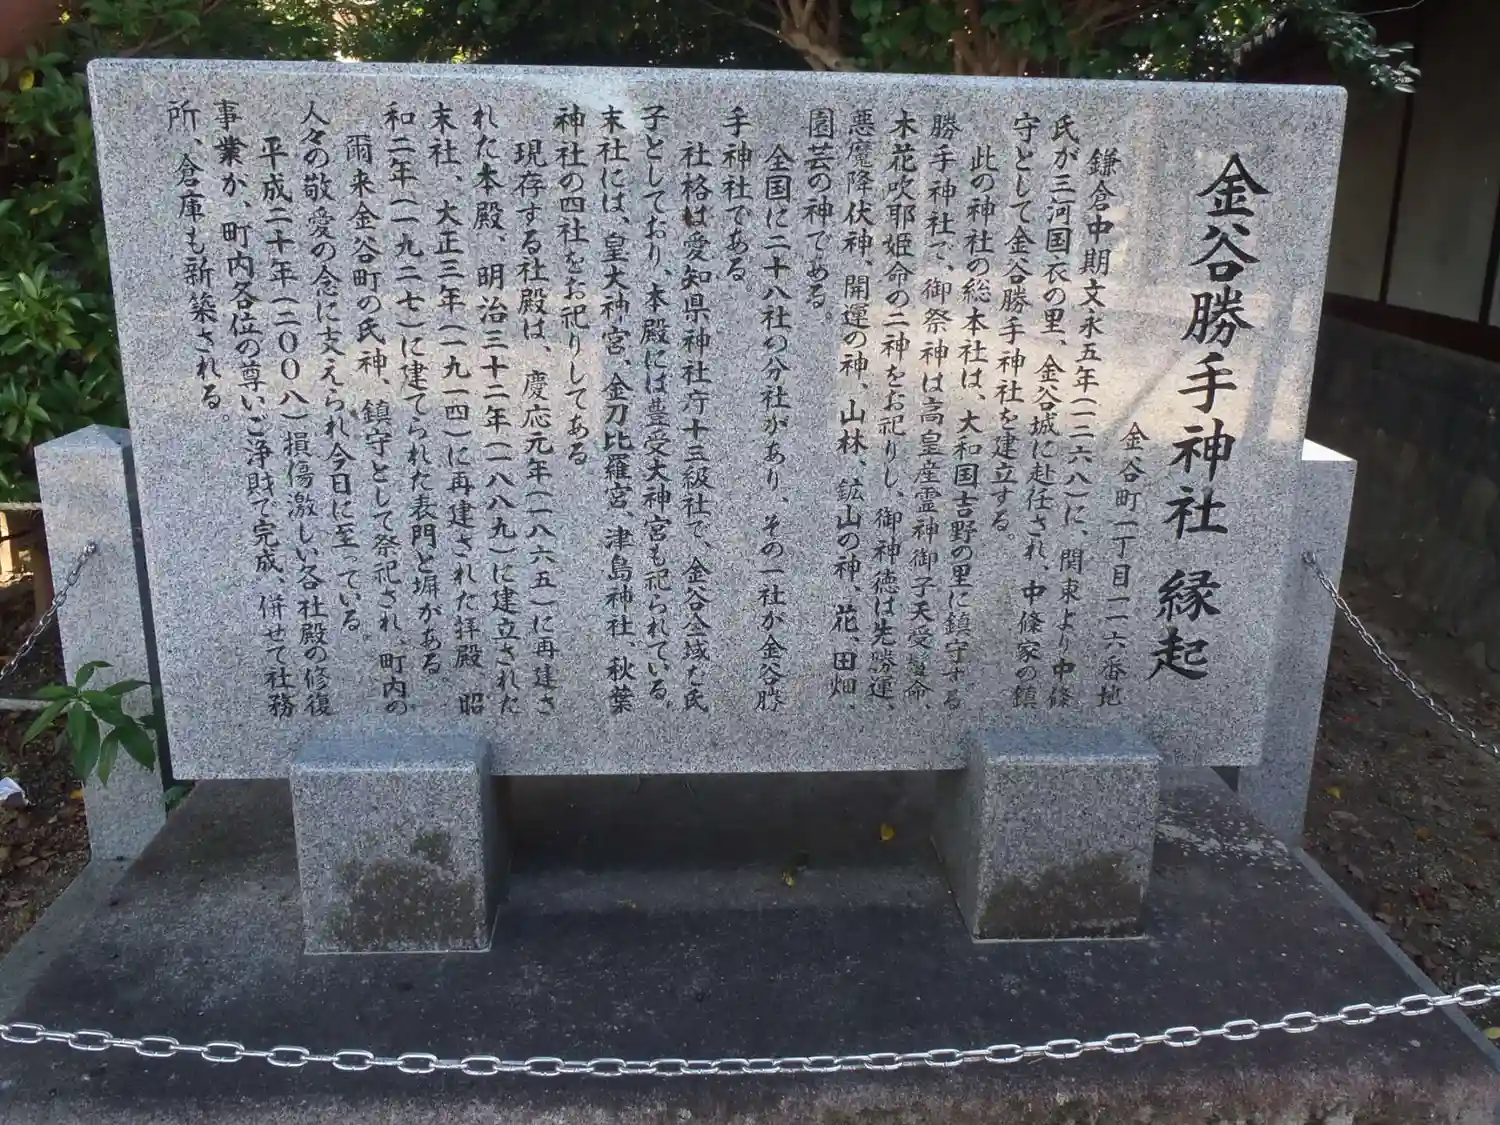 金谷勝手神社 縁起
金谷町一丁目一二六番地
鎌倉中期文永五年(一二六八)に、関東より中條
氏が三河国衣の里、金谷城に赴任され、中條家の鎮
守として金谷勝手神社を建立する。
此の神社の総本社は、大和国吉野の里に鎮守する
勝手神社で、御祭神は高皇産霊神御子天受鬘命、
木花吹耶姫命の二神をお祀りし、御神徳は先勝運、
悪魔降伏神、開運の神、山林、鉱山の神、花、田畑、
園芸の神である。
全国に二十八社の分社があり、その一社が金谷勝
手神社である。
社格は愛知県神社庁十三級社で、金谷全域を氏
子としており、本殿には豊受大神宮も祀られている。
末社には、皇大神宮、金刀比羅宮、津島神社、秋葉
神社の四社をお祀りしてある
現存する社殿は、慶応元年(一八六五)に再建さ
れた本殿、明治三十二年(一八九九)に建立された
末社、大正三年(一九一四)に再建された拝殿、昭
和二年(一九二七)に建てられた表門と塀がある。
爾来金谷町の氏神、鎮守として祭祀され、町内の
人々の敬愛の念に支えられ今日に至っている。
平成二十年(二〇〇八)損傷激しい各社殿の修復
事業が、町内各位の尊いご浄財で完成、併せて社務
所、倉庫も新築される。